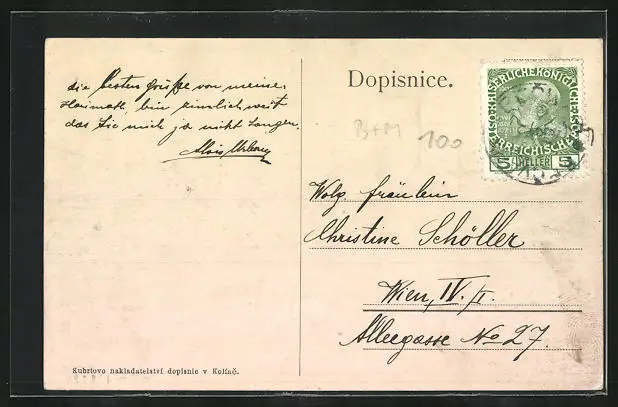 Dopisnice.
die besten Grüße von meiner
Heimath, bin ziemlich weit
das Sie mich ja nicht langen.
Alois
B+M
100
KAISERLICHE KÖNIGLICHE
ÖSTERREICHISCHE
5 HELLER 5
Wolg. Fräulein
Christine Schöller
Wien, IV./1.
Alleegasse No 27.
Kubrtovo nakladatelství dopisnic v Kolíně.